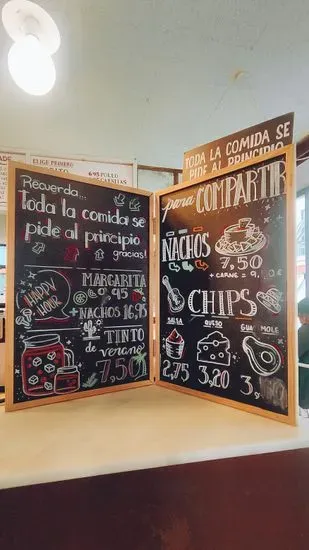 Recuerda...
Toda la comida se
pide al principio
gracias!
HAPPY
HOUR
MARGARITA
+ NACHOS 16,95
TINTO
de
verano
7,50
TODA LA COMIDA SE
PIDE AL PRINCIPIO
para COMPARTIR
NACHOS
7,50
+ CARNE =
CHIPS
SALSA QUESO GUA MOLE
2,75 3,20 3,
ELIGE PRIMERO